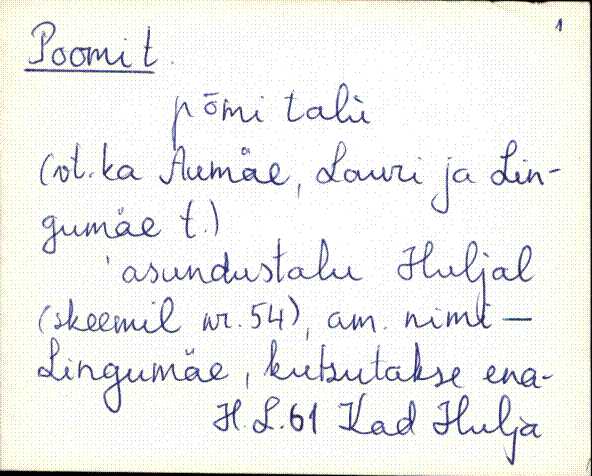 1
Poomi t.
pōmi talù
(vt. ka Aumäe, Lauri ja Lin-
gumäe t.)
'asundustalu Huljal
(skeemil nr. 54), am. nimi —
Lingumäe, kutsutakse ena-
H. L. 61 Kad Hulja